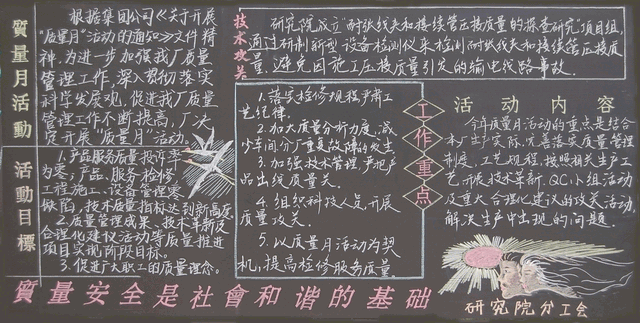 質量月活動
根据集团公司《关于开展
"质量月"活动的通知》文件精
神,为进一步加强我厂质量
管理工作,深入贯彻落实
科学发展观,促进我厂质量
管理工作不断提高,厂决
定开展"质量月"活动。
活動目標
1.产品服务质量投诉率
为零,产品、服务、检修
工程施工、设备管理零
缺陷,技术质量指标达到新高度。
2.质量管理成果、技术革新及
合理化建议活动等质量推进
项目实现阶段目标。
3.促进广大职工的质量理念。
技术攻关
研究院成立"耐张线夹和接续管压接质量的探查研究"项目组,
通过研制新型设备检测仪来检测耐张线夹和接续管压接质
量,避免因施工压接质量引发的输电线路事故。
1.落实检修规程严肃工
艺纪律。
2.加大质量分析力度,减
少车间分厂重复故障的发生
3.加强技术管理,严把产
品出线质量关。
4.组织科技人员开展
质量攻关。
5.以质量月活动为契
机,提高检修服务质量。
工作重点
活动内容
今年质量月活动的重点是结合
本厂生产实际,完善落实质量管理
制度、工艺规程,按照相关生产工
艺,开展技术革新、QC小组活动
及重大合理化建议的攻关活动
解决生产中出现的问题。
質量安全是社會和谐的基础
研究院分工会